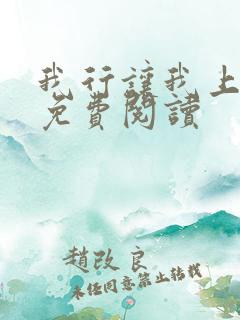 我行讓我上
免費閱讀
趙改良
未經同意禁止轉載